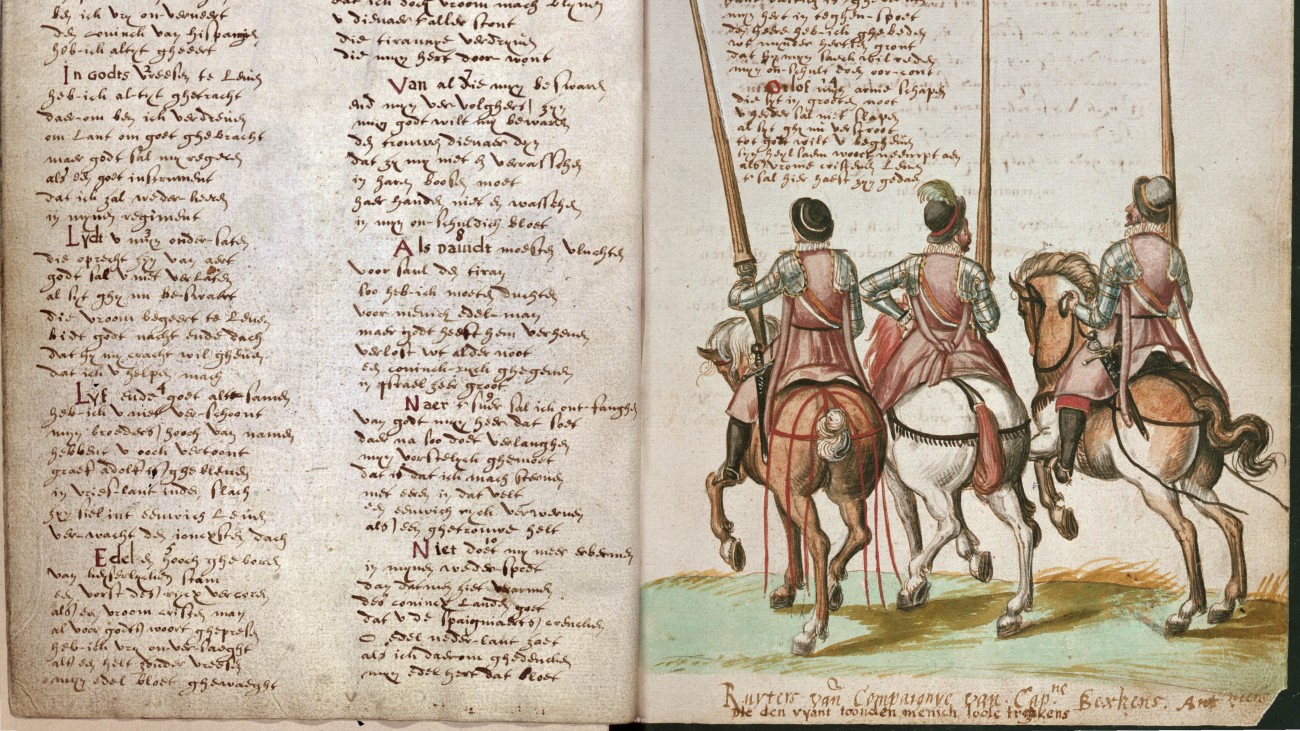 ben ick vry on-verveert
den coninck van hispanien
heb-ick altyt gheeert
In godts vreesen te Leven
heb-ick altyt ghetracht
daerom ben ick verdreven
om Lant om goet ghebracht
maer godt sal my regeren
als een goet instrument
dat ick zal wederkeeren
in mynen regiment
Lydt v myn ondersaten
die oprecht zyn van aert
godt sal v niet verlaten
al syt ghy nu beswaert
die vroom begeert te Leven
bidt godt nacht ende dach
dat hy my cracht wil gheven
dat ick v helpen mach
4
Lyf ende goet alte samen
heb-ick v niet verschoont
myn broeders hooch van namen
hebbent v ooch vertoont
graef adolf is ghebleven
in vries-lant inden slach
zyn siel int eewich Leven
verwacht den jonexsten dach
5
Edel en hooch gheboren
van keyserlycken stam
een vorst des rycx vercoren
als een vroom cristen man
al voor godts woort ghepresen
heb-ick vry on-versaeght
als een helt zonder vreesen
myn edel bloet ghewaeght
dat ick doch vroom mach blyven
v dienaer t'aller stont
die tirannye verdryven
die myn hert door-wont
7
Van al die my beswaren
end myn vervolghers zyn
myn godt wilt my bewaren
den trouwen dienaer dyn
dat zy my niet en verrasschen
in haren boosen moet
haer handen niet en wasschen
in myn on-schuldich bloet
8
Als dauidt moesten vluchten
voor saul den tiran
soo heb-ick moeten duchten
voor menich edel-man
maer godt heeft hem verheven
verlost wt alder noot
een coninck-ryck ghegeven
in israel zeer groot
9
Naer tsuer sal ick ont-fanghen
van godt myn heer dat soet
daer na soo doet verlanghen
myn vorstelyck ghemoet
dat is dat ick mach sterven
met eeren in dat velt
een eewich ryck verwerven
als een ghetrouwe helt
10
Niet doet my meer erbermen
in mynen wederspoet
dan datmen siet verarmen
des conincx Landen goet
dat v de spaignaerts crencken
O edel neder-lant zoet
als ick daerom ghedencken
myn edel hert dat bloet
myn hert in teghen-spoet
den heere heb-ick ghebeden
wt mynder herten gront
dat hy myn saeck wil reden
myn on-schult doen oor-cont
Orlof myn arme schapen
die syt in grooten noot
v herder sal niet slapen
al syt ghy nu verstroot
tot godt wilt v begheven
syn heylsaem woort neempt aen
als vrome cristenen Leven
t sal hier haest zyn gedaen
Ruyters van Compaignye van Cap.ne Bexkens. Ant
Die den vyant toonden menich loose treckens